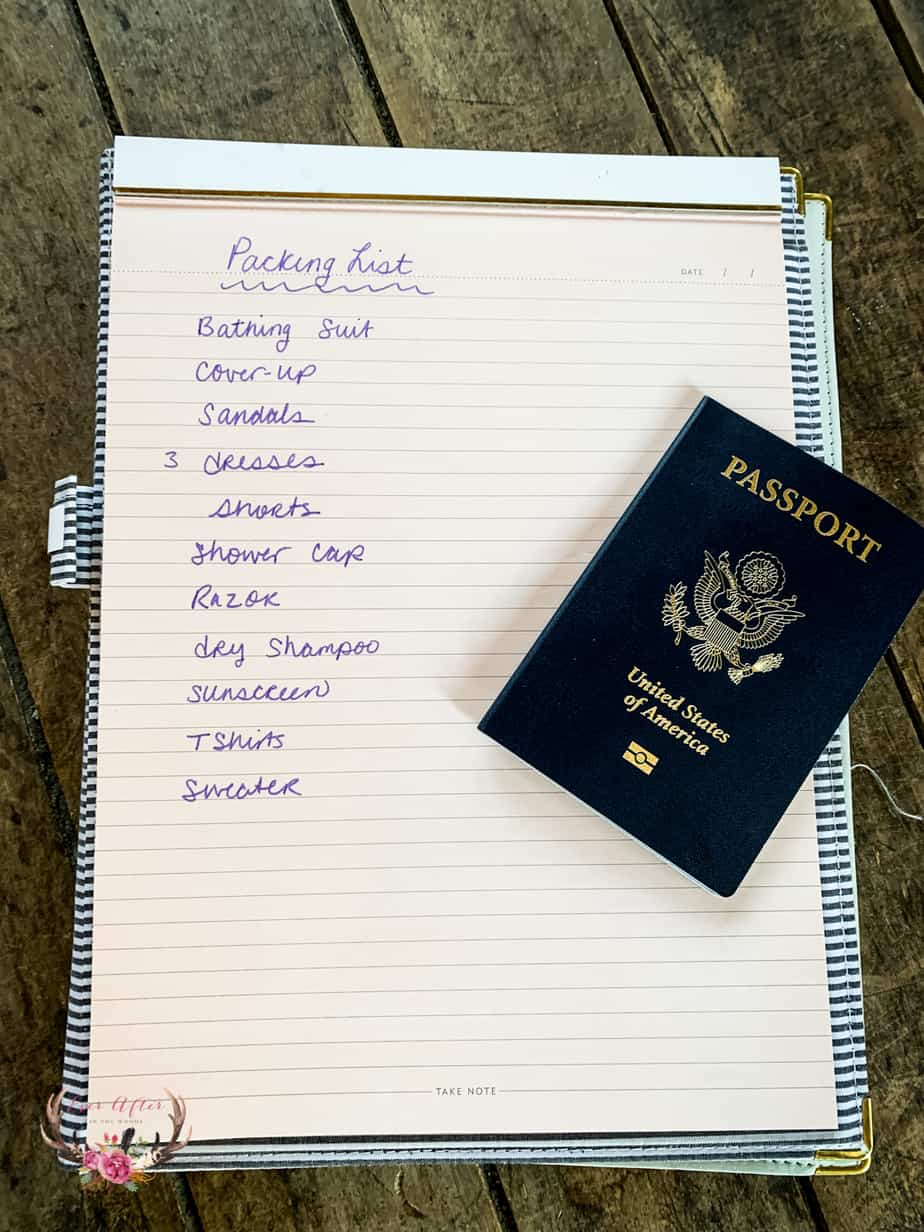 Packing List
DATE / /
Bathing Suit
Cover-up
Sandals
3 dresses
shorts
Shower Cap
Razor
dry Shampoo
Sunscreen
T Shirts
Sweater
PASSPORT
United States
of America
TAKE NOTE
Ever After
IN THE WOODS